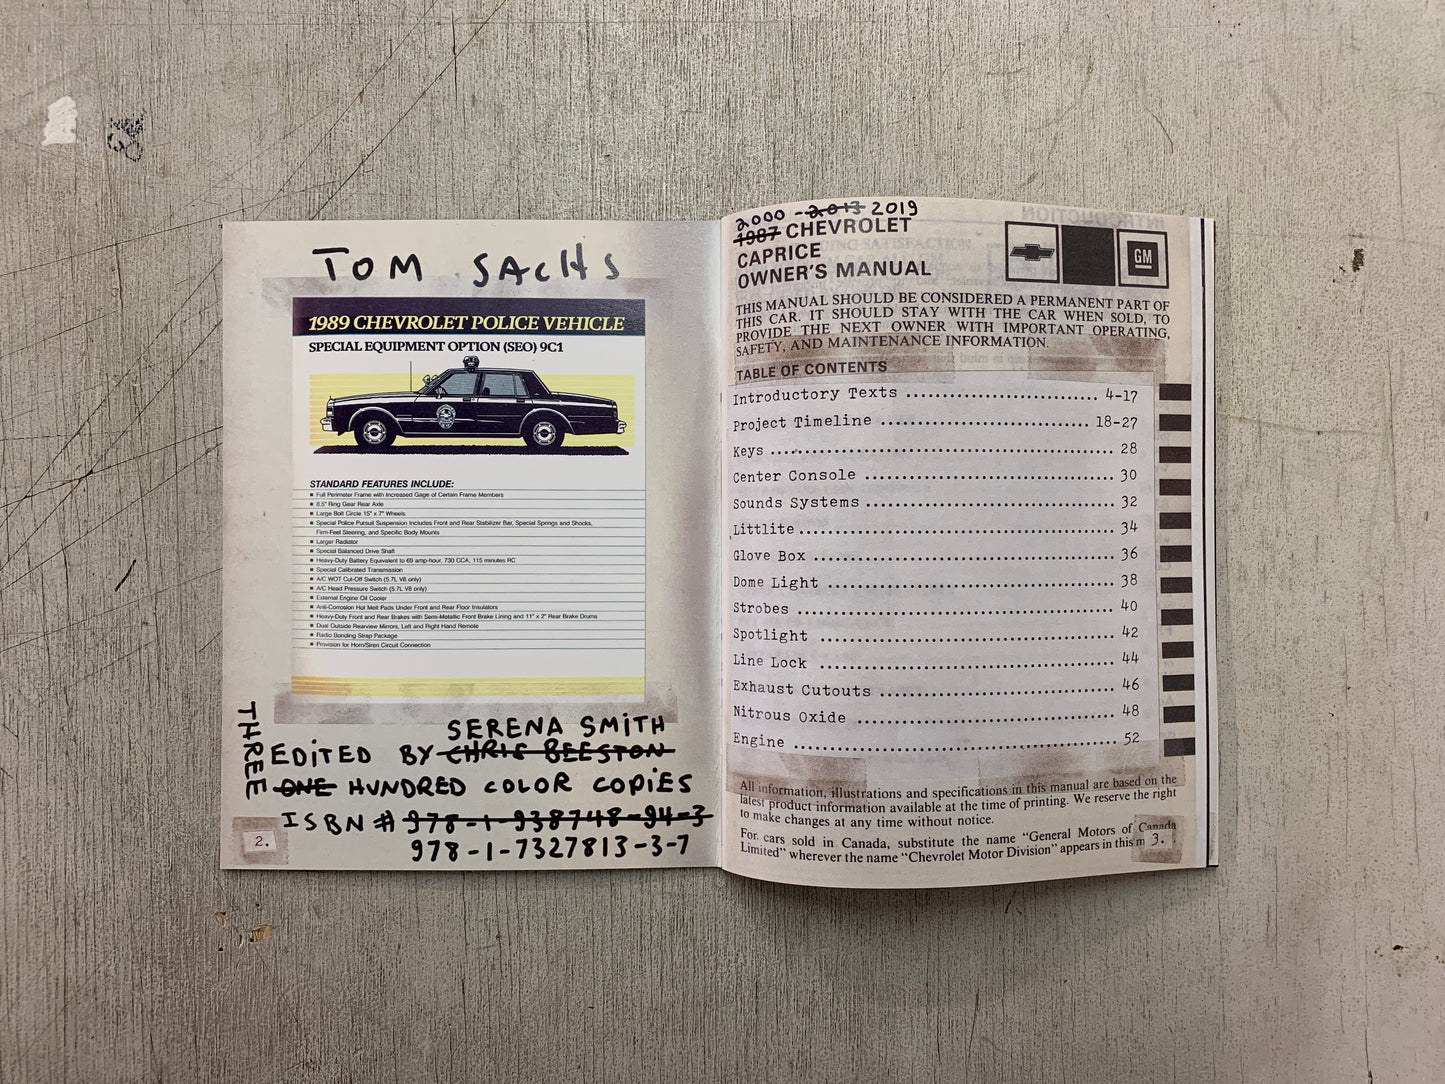 TOM SACHS
1989 CHEVROLET POLICE VEHICLE
SPECIAL EQUIPMENT OPTION (SEO) 9C1
STANDARD FEATURES INCLUDE:
■ Full Perimeter Frame with Increased Gage of Certain Frame Members
■ 8.5" Ring Gear Rear Axle
■ Large Bolt Circle 15" x 7" Wheels
■ Special Police Pursuit Suspension Includes Front and Rear Stabilizer Bar, Special Springs and Shocks,
Firm-Feel Steering, and Specific Body Mounts
■ Larger Radiator
■ Special Balanced Drive Shaft
■ Heavy-Duty Battery Equivalent to 69 amp-hour, 730 CCA, 115 minutes RC
■ Special Calibrated Transmission
■ A/C WOT Cut-Off Switch (5.7L V8 only)
■ A/C Head Pressure Switch (5.7L V8 only)
■ External Engine Oil Cooler
■ Anti-Corrosion Hot Melt Pads Under Front and Rear Floor Insulators
■ Heavy-Duty Front and Rear Brakes with Semi-Metallic Front Brake Lining and 11" x 2" Rear Brake Drums
■ Dual Outside Rearview Mirrors, Left and Right Hand Remote
■ Radio Bonding Strap Package
■ Provision for Horn/Siren Circuit Connection
SERENA SMiTH
EDiTED BY CHRIS BEESTON
THREE
ONE HUNDRED COLOR COPiES
ISBN # 978-1-938748-94-3
978-1-7327813-3-7
2.
2000 - 2013 2019
1987 CHEVROLET
CAPRICE
OWNER'S MANUAL
GM
THIS MANUAL SHOULD BE CONSIDERED A PERMANENT PART OF
THIS CAR. IT SHOULD STAY WITH THE CAR WHEN SOLD, TO
PROVIDE THE NEXT OWNER WITH IMPORTANT OPERATING,
SAFETY, AND MAINTENANCE INFORMATION.
TABLE OF CONTENTS
Introductory Texts ........................ 4-17
Project Timeline .......................... 18-27
Keys ........................................ 28
Center Console .............................. 30
Sounds Systems .............................. 32
Littlite ..................................... 34
Glove Box ................................... 36
Dome Light .................................. 38
Strobes ..................................... 40
Spotlight ................................... 42
Line Lock ................................... 44
Exhaust Cutouts ............................. 46
Nitrous Oxide ............................... 48
Engine ...................................... 52
All information, illustrations and specifications in this manual are based on the
latest product information available at the time of printing. We reserve the right
to make changes at any time without notice.
For cars sold in Canada, substitute the name "General Motors of Canada
Limited" wherever the name "Chevrolet Motor Division" appears in this m
3.